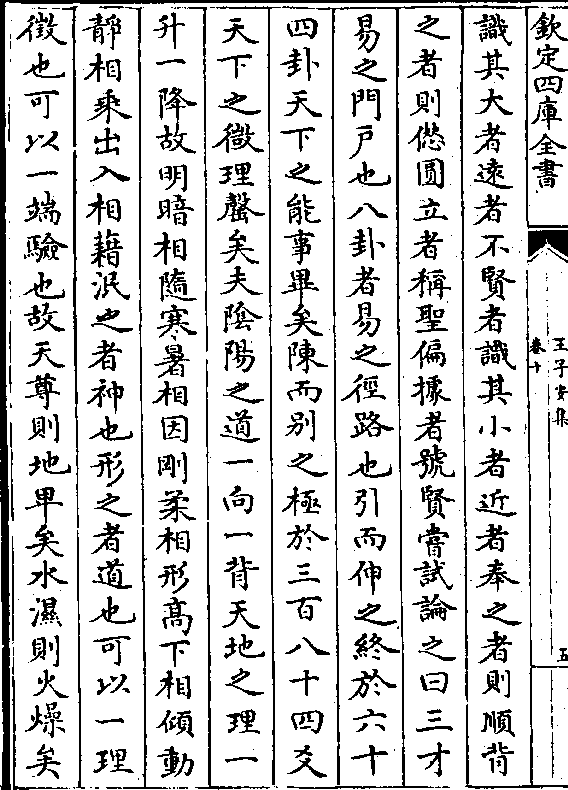 欽定四庫全書
王子安集
卷十
五
識其大者遠者不賢者識其小者近者奉之者則順背
之者則愆圓立者稱聖偏據者號賢嘗試論之曰三才
易之門戶也八卦者易之徑路也引而伸之終於六十
四卦天下之能事畢矣陳而別之極於三百八十四爻
天下之微理罄矣夫陰陽之道一向一背天地之理一
升一降故明暗相隨寒暑相因剛柔相形高下相傾動
靜相乘出入相藉泯之者神也形之者道也可以一理
徴也可以一端驗也故天尊則地卑矣水濕則火燥矣